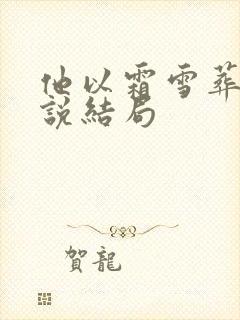 他以霜雪葬
說結局
賀龍